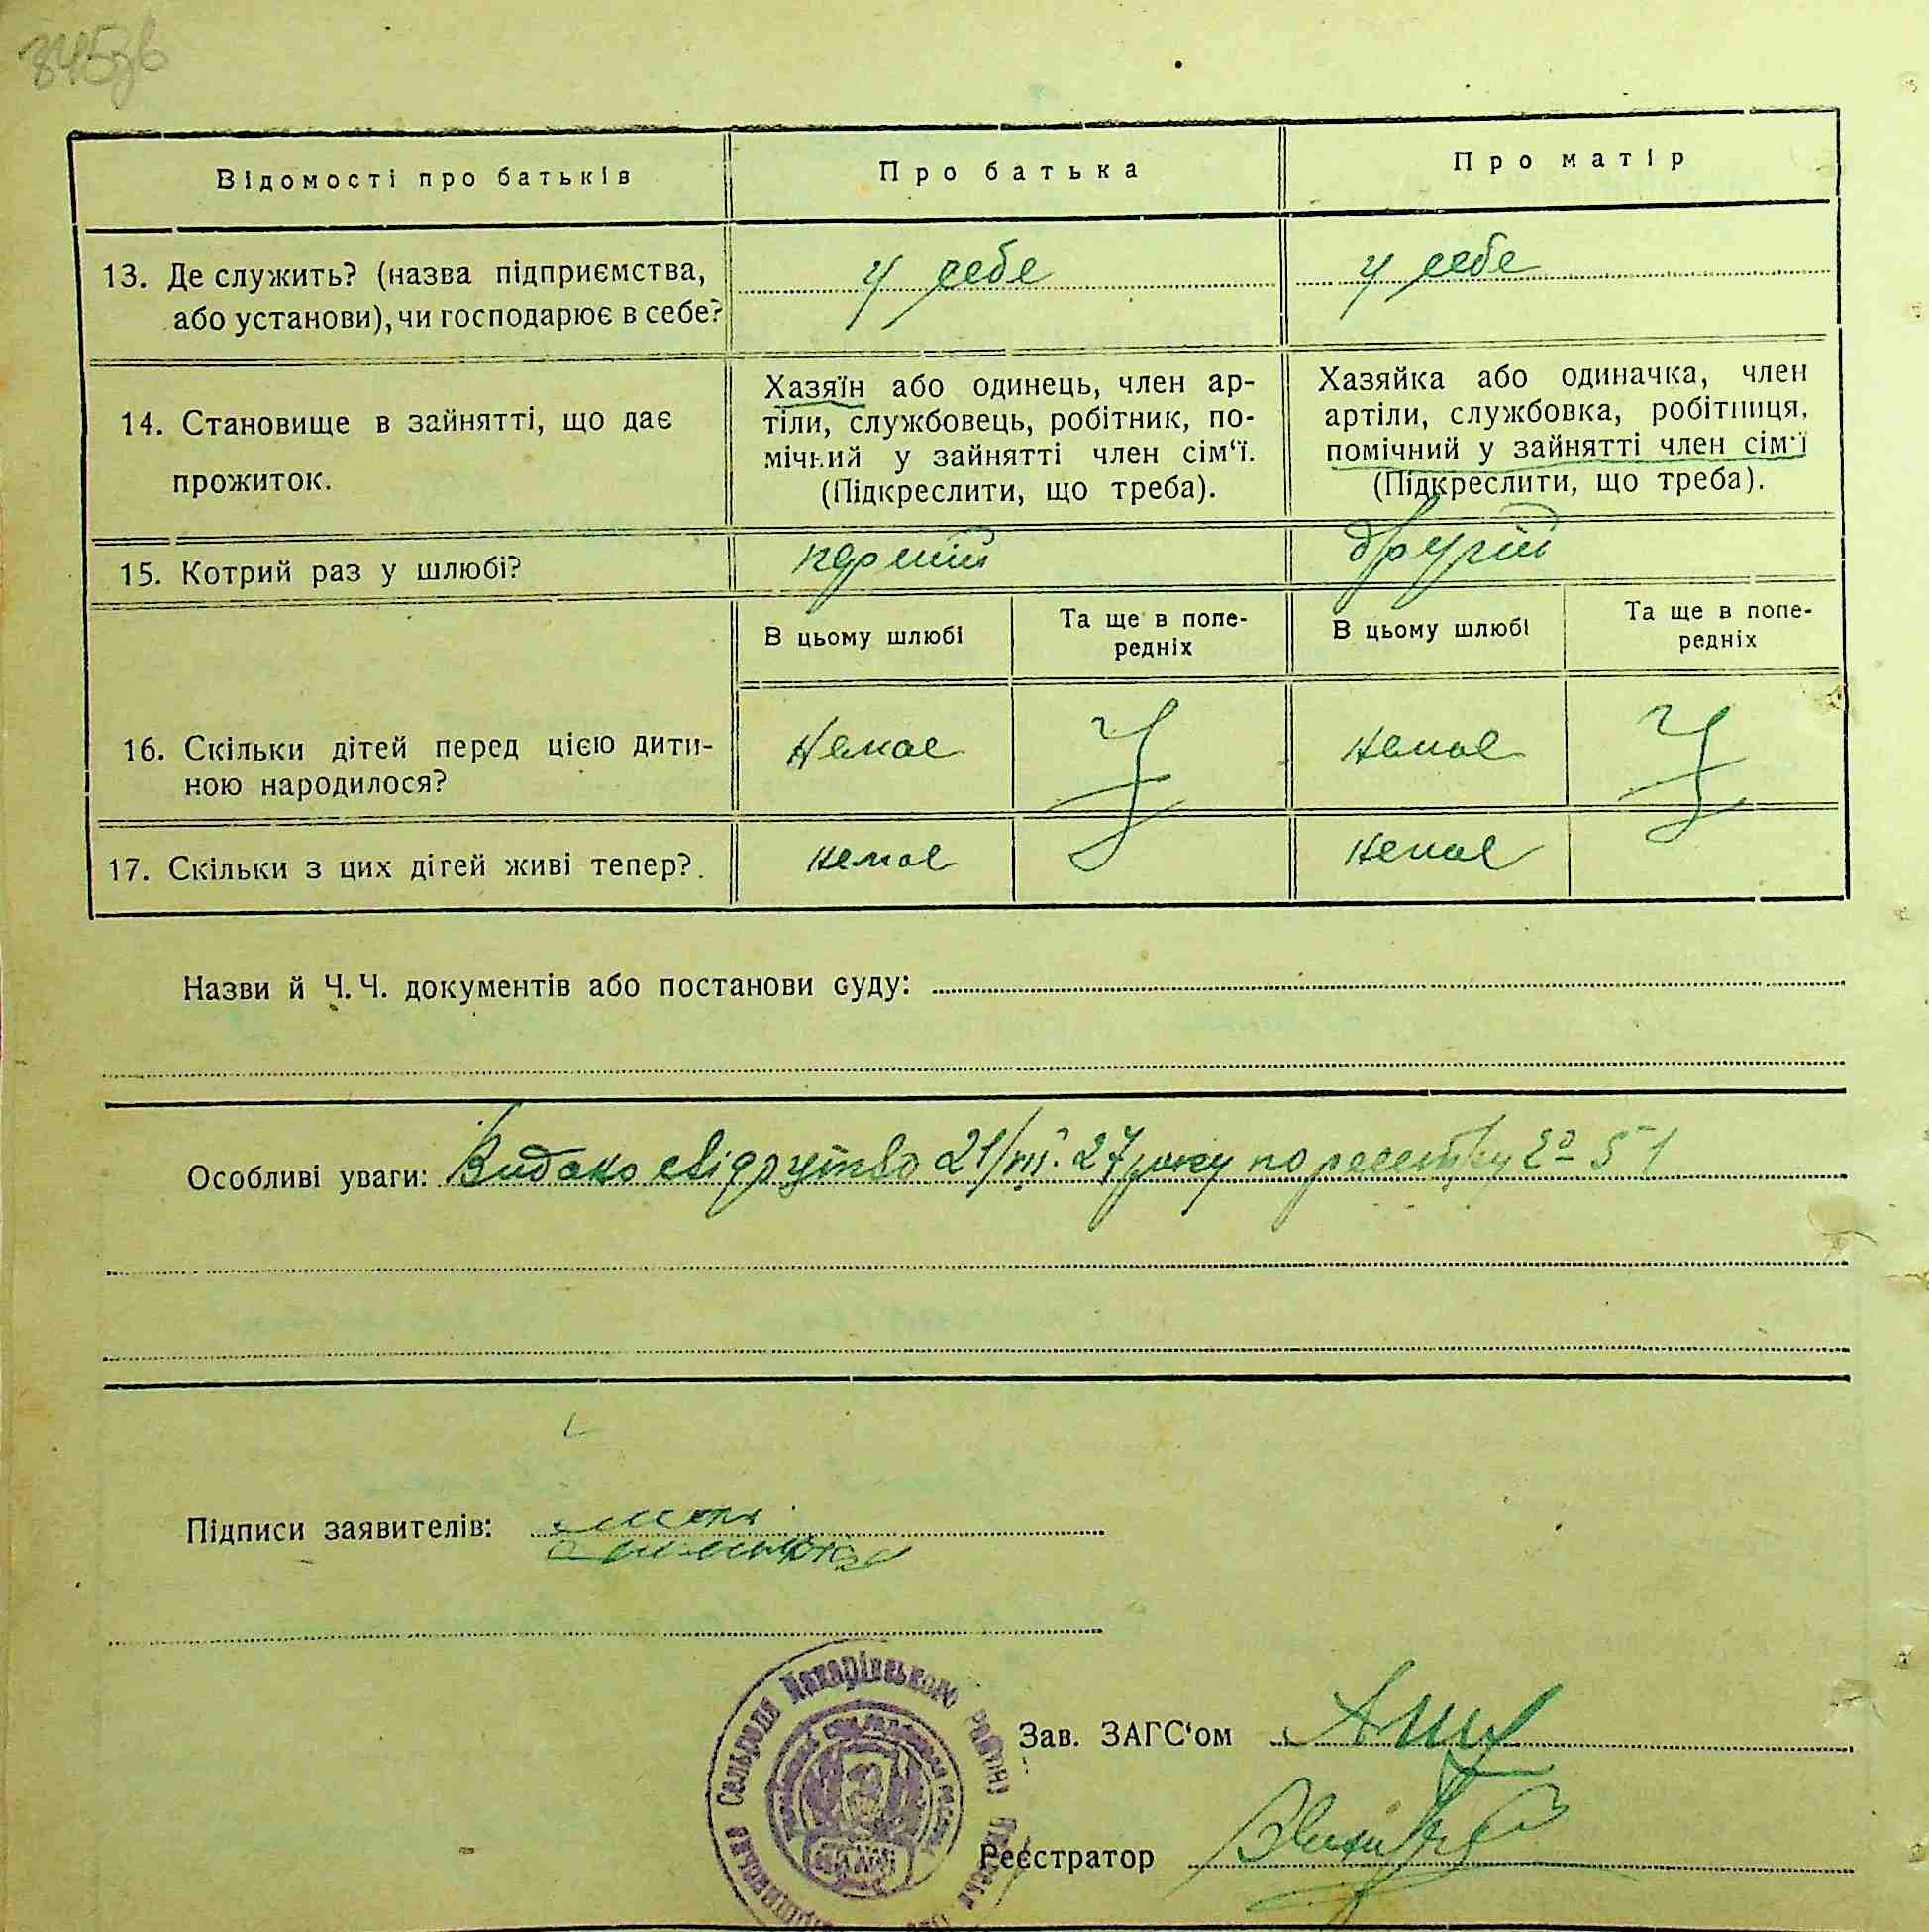 845зв
Відомості про батьків
Про батька
Про матір
13. Де служить? (назва підприємства,
або установи), чи господарює в себе?
у себе
у себе
14. Становище в зайнятті, що дає
прожиток.
Хазяїн або одинець, член ар-
тіли, службовець, робітник, по-
мічний у зайнятті член сім‘ї.
(Підкреслити, що треба).
Хазяйка або одиначка, член
артіли, службовка, робітниця,
помічний у зайнятті член сім‘ї
(Підкреслити, що треба).
15. Котрий раз у шлюбі?
перший
другій
В цьому шлюбі
Та ще в попе-
редніх
В цьому шлюбі
Та ще в попе-
редніх
16. Скільки дітей перед цією дити-
ною народилося?
Немае
немае
17. Скільки з цих дітей живі тепер?.
немае
немае
Назви й Ч. Ч. документів або постанови суду:
Особливі уваги: Видано свідоцтво 21/III. 27 року по реестру № 51
Підписи заявителів:
Сельради Макарівського району
Зав. ЗАГС‘ом
Реєстратор